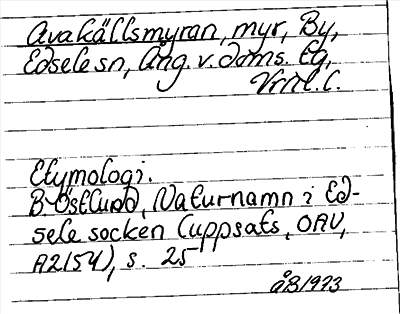 Avakällsmyran, myr, By,
Edsele sn, Ång. v. doms. Eg,
Vrml. C.
Etymologi.
B. Östlund, Naturnamn i Ed-
sele socken (uppsats, OAU,
A2154), s. 25
åB1973